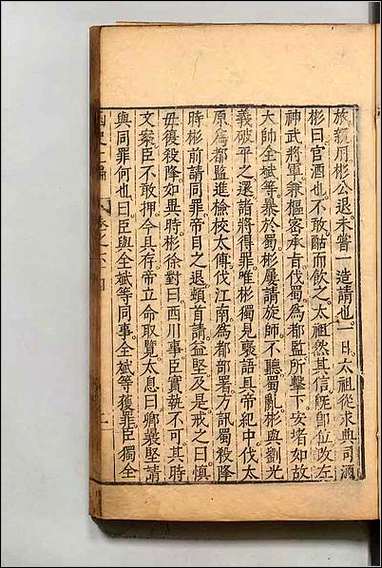 旅親用彬公退未嘗一造請也一日太祖從求典司酒
彬曰官酒也不敢酤而飲之太祖然其信既即位改左
神武將軍兼樞密承旨伐蜀爲都監所擊下安堵如故
大帥全斌等暴於蜀彬屢請旋師不聽蜀亂彬與劉光
義破平之還諸將得罪唯彬獨見褒語具帝紀中伐太
原爲都監進檢校太傅伐江南爲都部署方訊蜀殺降
時彬前請同罪帝目之退頓首請益堅及是戒之曰慎
毋復殺降如異時彬徐對曰西川事臣實執不可其時
文案臣不敢押今具存帝立命取覽太息曰卿曩堅請
與同罪何也曰臣與全斌等同事全斌等獲罪臣獨全
史上編 卷之六